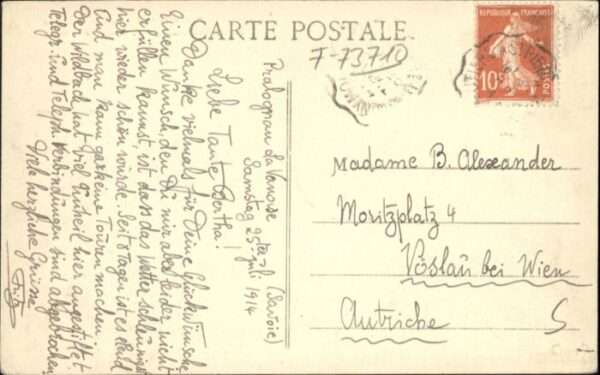 CARTE POSTALE
F-73710
RÉPUBLIQUE FRANÇAISE
10c
Pralognan la Vanoise
(Savoie)
Samstag 25ten Juli 1914
Liebe Tante Bertha!
Danke vielmals für Deine Glückwünsche
Einen Wunsch, den Du mir aber leider nicht
erfüllen kannst, ist dass das Wetter schleunigst
hier wieder schön würde. Seit 8 Tagen ist es elend
und man kann gar keine Touren machen
Der Wildbach hat viel Unheil hier angestiftet
Telegr. und Teleph. Verbindungen sind abgebrochen
Viele herzliche Grüsse
Madame B. Alexander
Moritzplatz 4
Vöslau bei Wien
Autriche
S